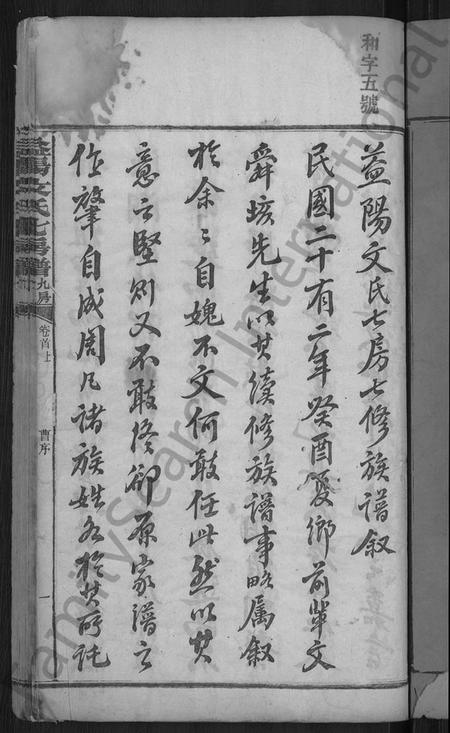 和字五號
益陽文氏七房七修族譜叙
民國二十有二年癸酉夏鄉前輩文
舜垓先生以其續修族譜事略属叙
於余〻自媿不文何敢任此然以其
意之堅則又不敢終卻原家譜之
作肇自成周凡諸族姓各於其所託
益陽文氏七房譜
九房
卷首上
曹序
一
FamilySearch International